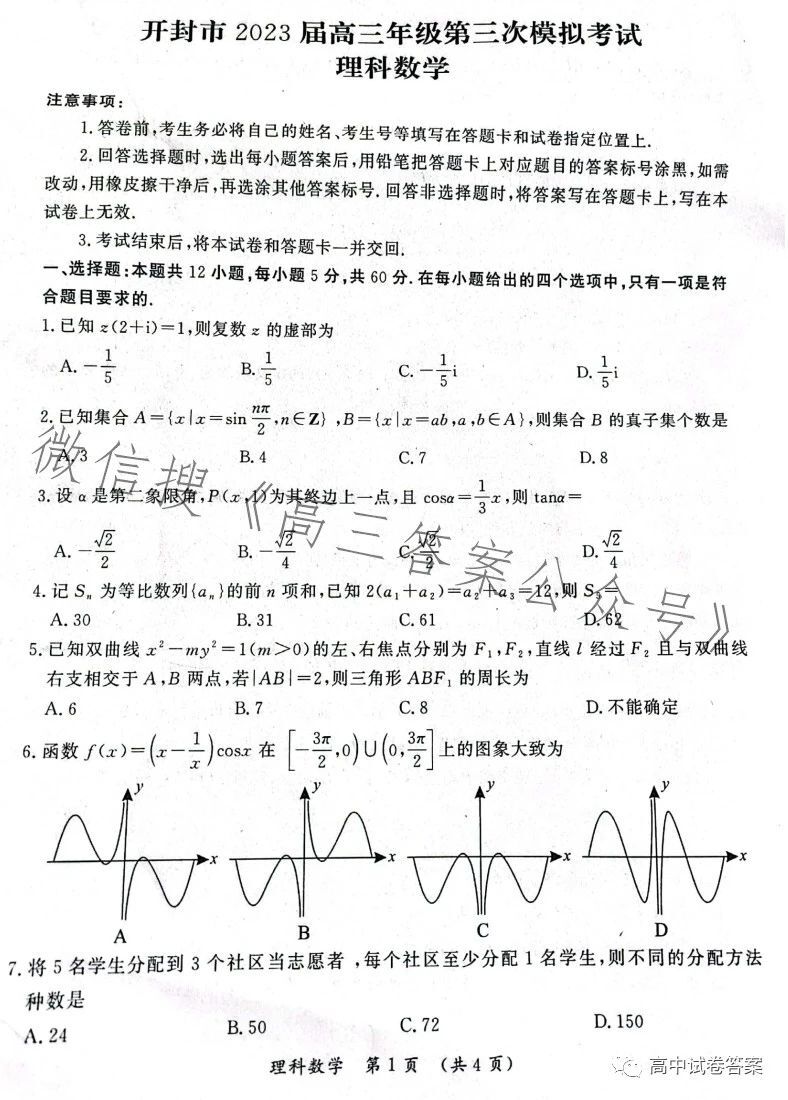 开封市 2023 届高三年级第三次模拟考试
理科数学
注意事项:
1. 答卷前,考生务必将自己的姓名、考生号等填写在答题卡和试卷指定位置上.
2. 回答选择题时,选出每小题答案后,用铅笔把答题卡上对应题目的答案标号涂黑,如需
改动,用橡皮擦干净后,再选涂其他答案标号. 回答非选择题时,将答案写在答题卡上,写在本
试卷上无效.
3. 考试结束后,将本试卷和答题卡一并交回.
一、选择题:本题共 12 小题,每小题 5 分,共 60 分. 在每小题给出的四个选项中,只有一项是符
合题目要求的.
1. 已知 z(2+i)=1,则复数 z 的虚部为
A. -1/5 B. 1/5 C. -1/5 i D. 1/5 i
2. 已知集合 A={x|x=sin nπ/2,n∈Z} ,B={x|x=ab,a,b∈A},则集合 B 的真子集个数是
A. 3 B. 4 C. 7 D. 8
3. 设 α 是第二象限角,P(x,1)为其终边上一点,且 cosα=1/3 x,则 tanα=
A. -√2/2 B. -√2/4 C. √2/2 D. √2/4
4. 记 Sₙ 为等比数列{aₙ}的前 n 项和,已知 2(a₁+a₂)=a₂+a₃=12,则 S₅=
A. 30 B. 31 C. 61 D. 62
5. 已知双曲线 x²-my²=1(m>0)的左、右焦点分别为 F₁,F₂,直线 l 经过 F₂ 且与双曲线
右支相交于 A,B 两点,若|AB|=2,则三角形 ABF₁ 的周长为
A. 6 B. 7 C. 8 D. 不能确定
6. 函数 f(x)=(x-1/x)cosx 在 [-3π/2,0)∪(0,3π/2]上的图象大致为
y y y y
x x x x
A B C D
7. 将 5 名学生分配到 3 个社区当志愿者 ,每个社区至少分配 1 名学生,则不同的分配方法
种数是
A. 24 B. 50 C. 72 D. 150
理科数学 第 1 页 (共 4 页)
微信搜《高三答案公众号》
高中试卷答案